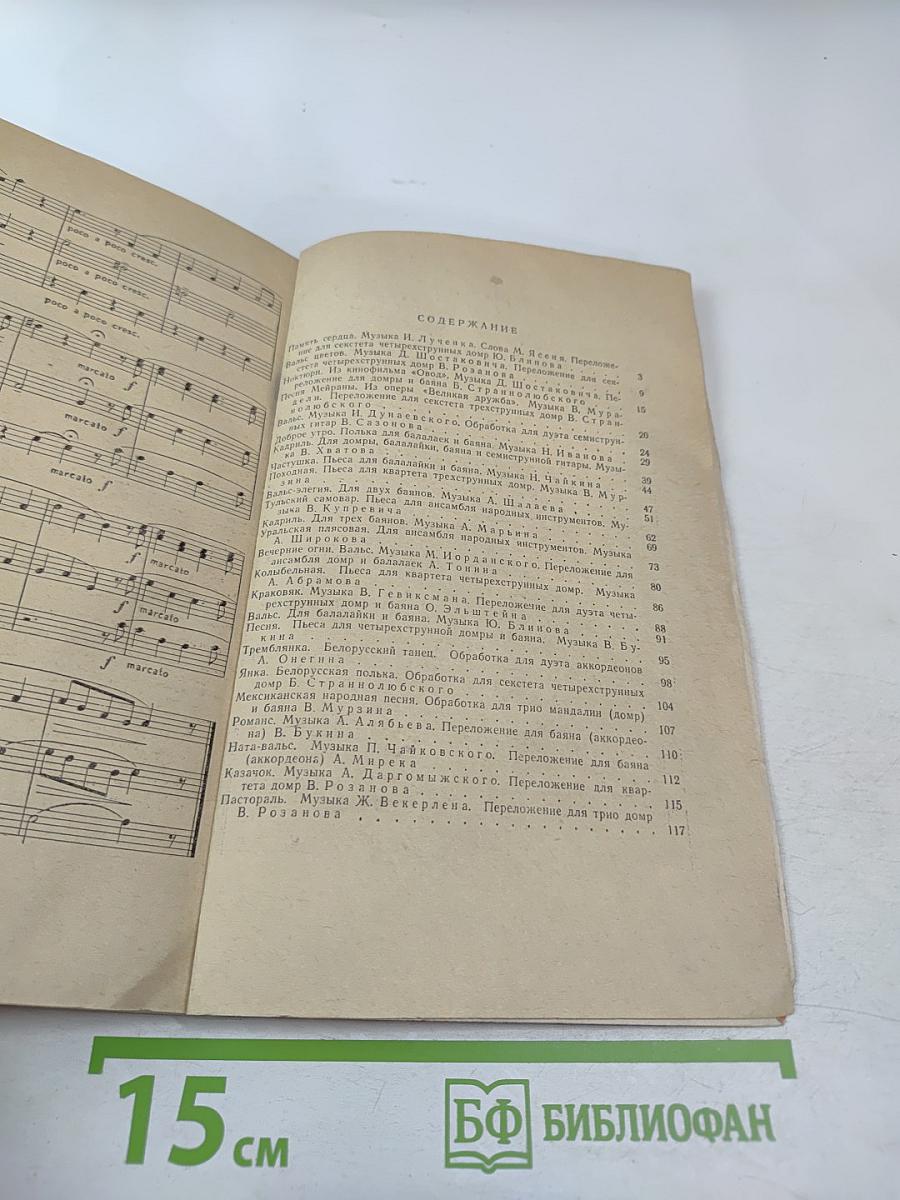 poco a poco cresc.
poco a poco cresc.
poco a poco cresc.
marcato f
marcato f
marcato f
f marcato
f marcato
f marcato
СОДЕРЖАНИЕ
Память сердца. Музыка И. Лученка. Слова М. Ясеня. Переложе-
ние для секстета четырехструнных домр Ю. Блинова . . . 3
Вальс цветов. Музыка Д. Шостаковича. Переложение для сек-
стета четырехструнных домр В. Розанова . . . 9
Ноктюрн. Из кинофильма «Овод». Музыка Д. Шостаковича. Пе-
реложение для домры и баяна Б. Страннолюбского . . . 15
Песня Мейраны. Из оперы «Великая дружба». Музыка В. Мура-
дели. Переложение для секстета трехструнных домр В. Стран-
нолюбского . . . 20
Вальс. Музыка И. Дунаевского. Обработка для дуэта семиструн-
ных гитар В. Сазонова . . . 24
Доброе утро. Полька для балалаек и баяна. Музыка Н. Иванова . . . 29
Кадриль. Для домры, балалайки, баяна и семиструнной гитары. Музы-
ка В. Хватова . . . 39
Частушка. Пьеса для балалайки и баяна. Музыка Н. Чайкина . . . 44
Походная. Пьеса для квартета трехструнных домр. Музыка В. Мур-
зина . . . 47
Вальс-элегия. Для двух баянов. Музыка А. Шалаева . . . 51
Тульский самовар. Пьеса для ансамбля народных инструментов. Му-
зыка В. Купревича . . . 62
Кадриль. Для трех баянов. Музыка А. Марьина . . . 69
Уральская плясовая. Для ансамбля народных инструментов. Музыка
А. Широкова . . . 73
Вечерние огни. Вальс. Музыка М. Иорданского. Переложение для
ансамбля домр и балалаек А. Тонина . . . 80
Колыбельная. Пьеса для квартета четырехструнных домр. Музыка
А. Абрамова . . . 86
Краковяк. Музыка В. Гевиксмана. Переложение для дуэта четы-
рехструнных домр и баяна О. Эльштейна . . . 88
Вальс. Для балалайки и баяна. Музыка Ю. Блинова . . . 91
Песня. Пьеса для четырехструнной домры и баяна. Музыка В. Бу-
кина . . . 95
Тремблянка. Белорусский танец. Обработка для дуэта аккордеонов
А. Онегина . . . 98
Янка. Белорусская полька. Обработка для секстета четырехструнных
домр Б. Страннолюбского . . . 104
Мексиканская народная песня. Обработка для трио мандалин (домр)
и баяна В. Мурзина . . . 107
Романс. Музыка А. Алябьева. Переложение для баяна (аккордео-
на) В. Букина . . . 110
Ната-вальс. Музыка П. Чайковского. Переложение для баяна
(аккордеона) А. Мирека . . . 112
Казачок. Музыка А. Даргомыжского. Переложение для квар-
тета домр В. Розанова . . . 115
Пастораль. Музыка Ж. Векерлена. Переложение для трио домр
В. Розанова . . . 117
15 см
БФ БИБЛИОФАН